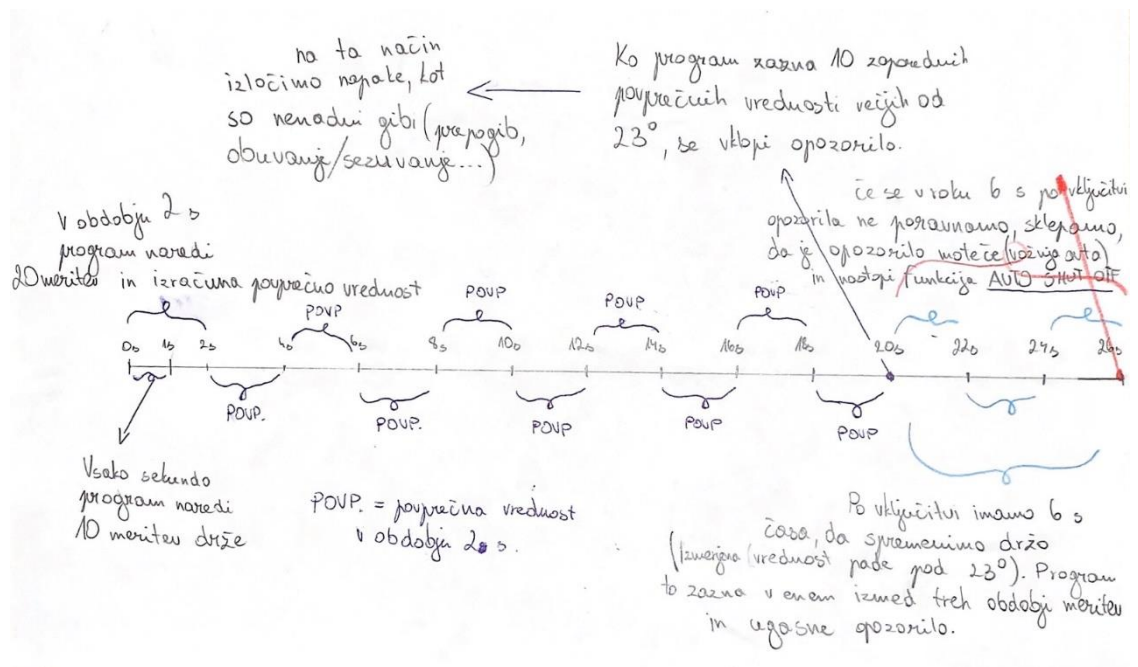 na ta način
izločimo napake, kot
so nenadni gibi (prepogib,
obuvanje/sezuvanje...)
Ko program zazna 10 zaporednih
povprečnih vrednosti večjih od
23°, se vklopi opozorilo.
če se v roku 6 s po vključitvi
opozorila ne poravnamo, sklepamo,
da je opozorilo moteče (vožnja avta)
in nastopi funkcija AUTO SHUT OFF
V obdobju 2 s
program naredi
20 meritev in izračuna povprečno vrednost
POVP
POVP
POVP
POVP
0s 1s 2s 4s 6s 8s 10s 12s 14s 16s 18s 20s 22s 24s 26s
POVP.
POVP.
POVP
POVP
POVP
Vsako sekundo
program naredi
10 meritev drže
POVP. = povprečna vrednost
v obdobju 2 s.
Po vključitvi imamo 6 s
časa, da spremenimo držo
(Izmerjena vrednost pade pod 23°). Program
to zazna v enem izmed treh obdobji meritev
in ugasne opozorilo.